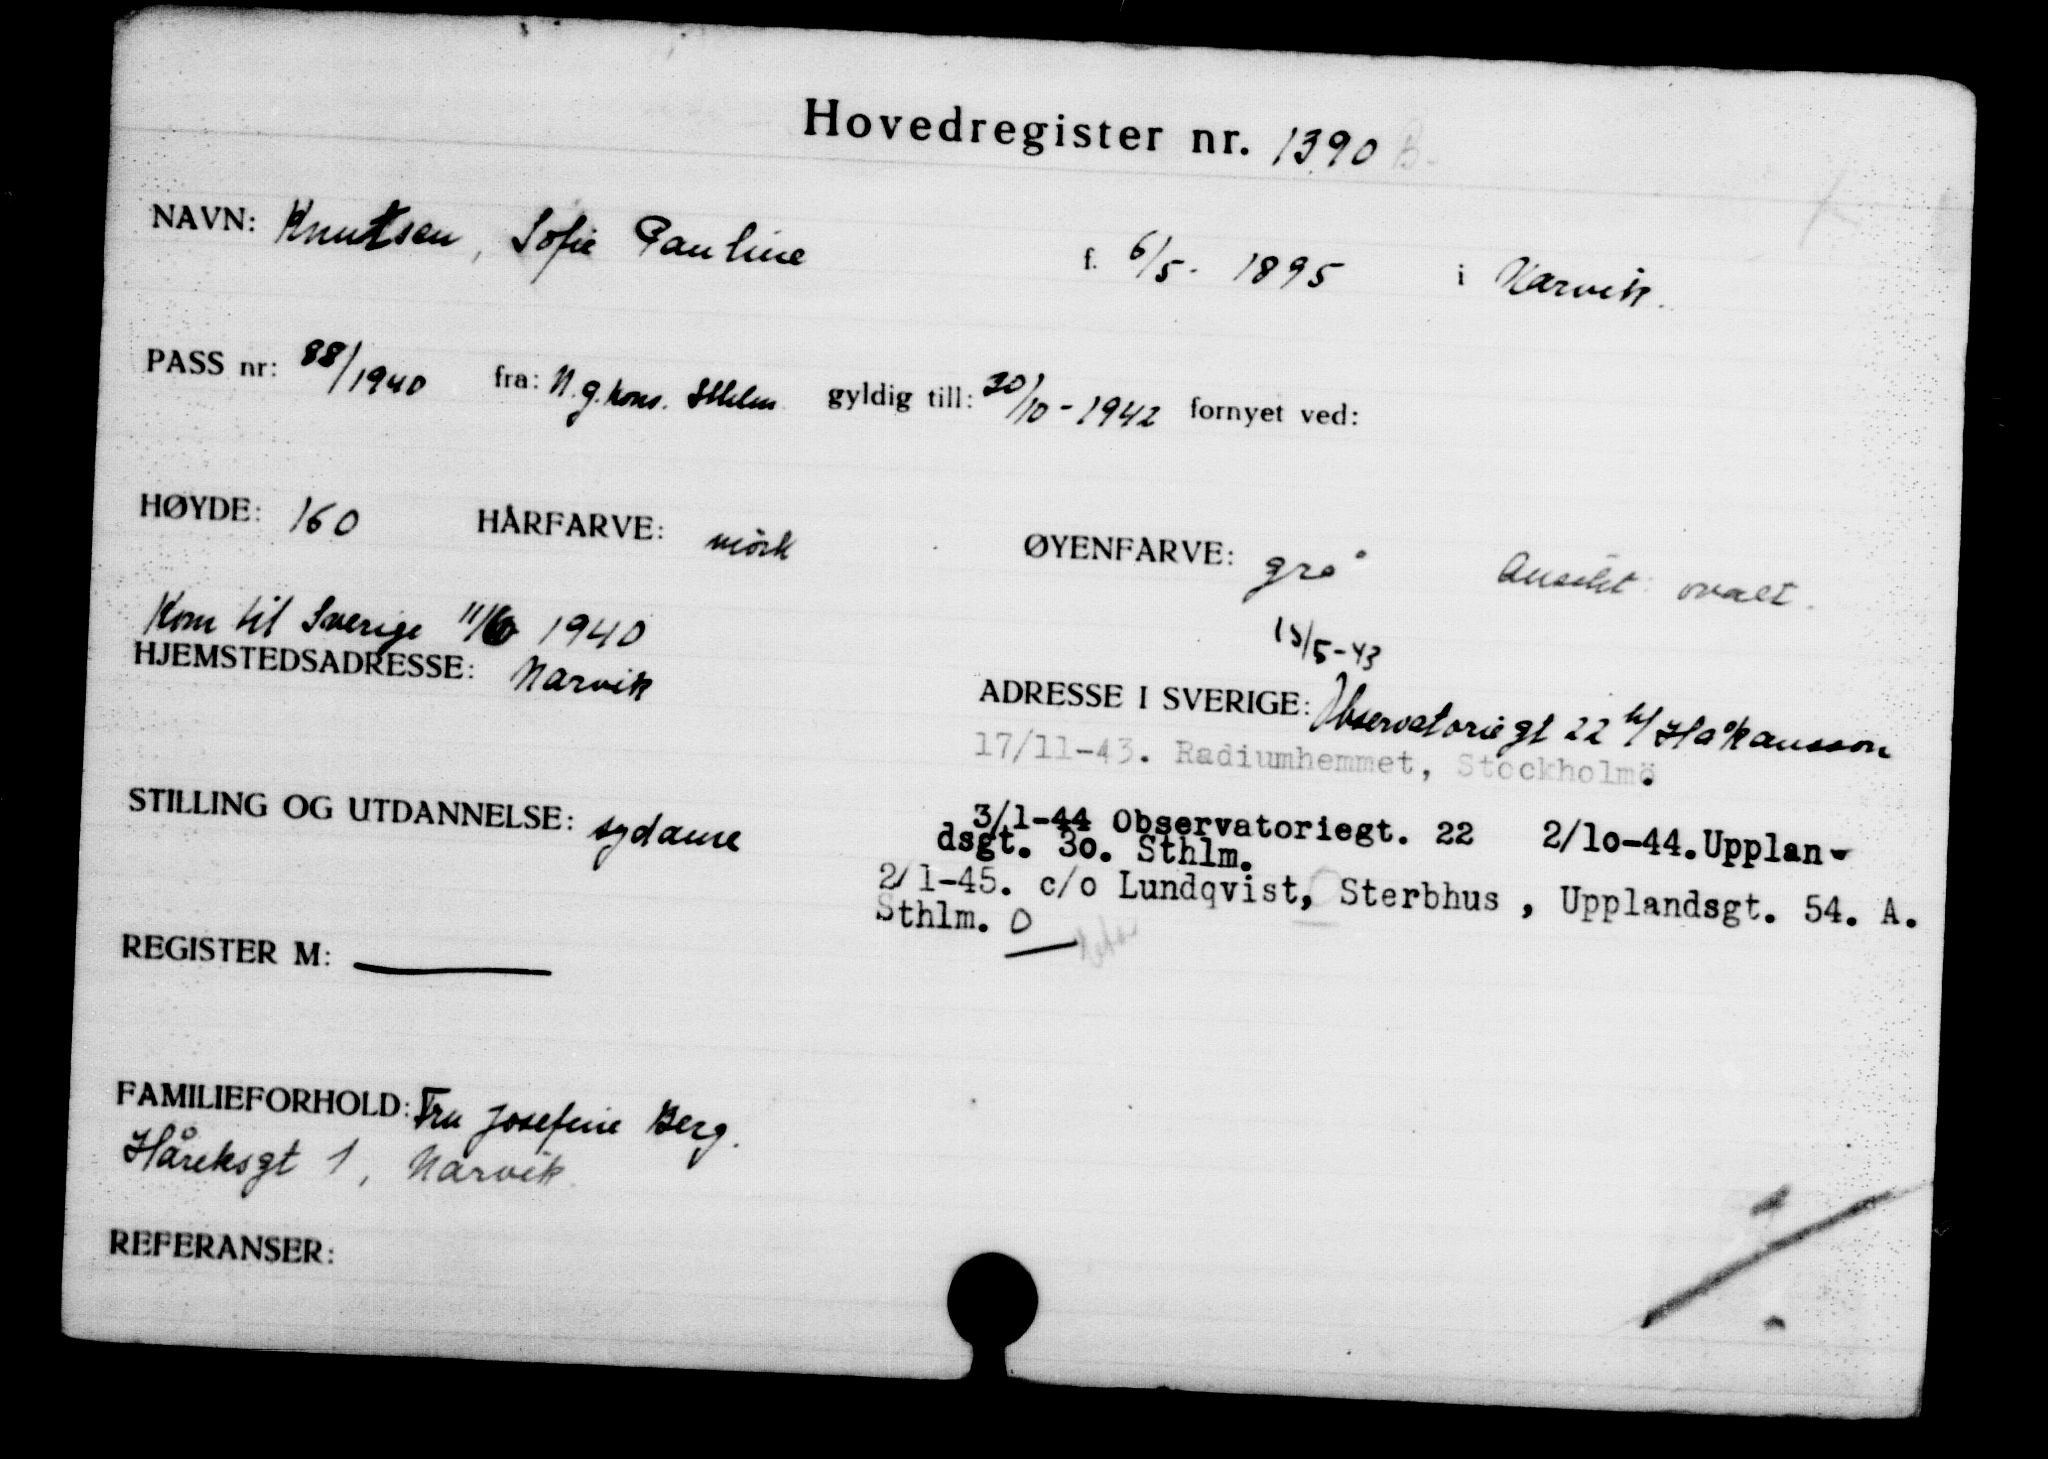 Hovedregister nr. 1390 B.
NAVN: Knutsen, Sofie Pauline f. 6/5 - 1895 i Narvik.
PASS nr: 88/1940 fra: N.g.kons. Sthlm gyldig till: 30/10 - 1942 fornyet ved:
HØYDE: 160 HÅRFARVE: mörk ØYENFARVE: grå Ansikt: ovalt.
Kom til Sverige 11/6 1940
15/5-43
HJEMSTEDSADRESSE: Narvik ADRESSE I SVERIGE: Observatoriegt 22 h/ Håkansson
17/11-43. Radiumhemmet, Stockholm.
STILLING OG UTDANNELSE: sydame
3/1-44 Observatoriegt. 22 2/10-44. Upplan-
dsgt. 30. Sthlm.
2/1-45. c/o Lundqvist, Sterbhus, Upplandsgt. 54. A.
Sthlm. O
REGISTER M:
FAMILIEFORHOLD: Fru Josefine Berg.
Håreksgt 1, Narvik.
REFERANSER: